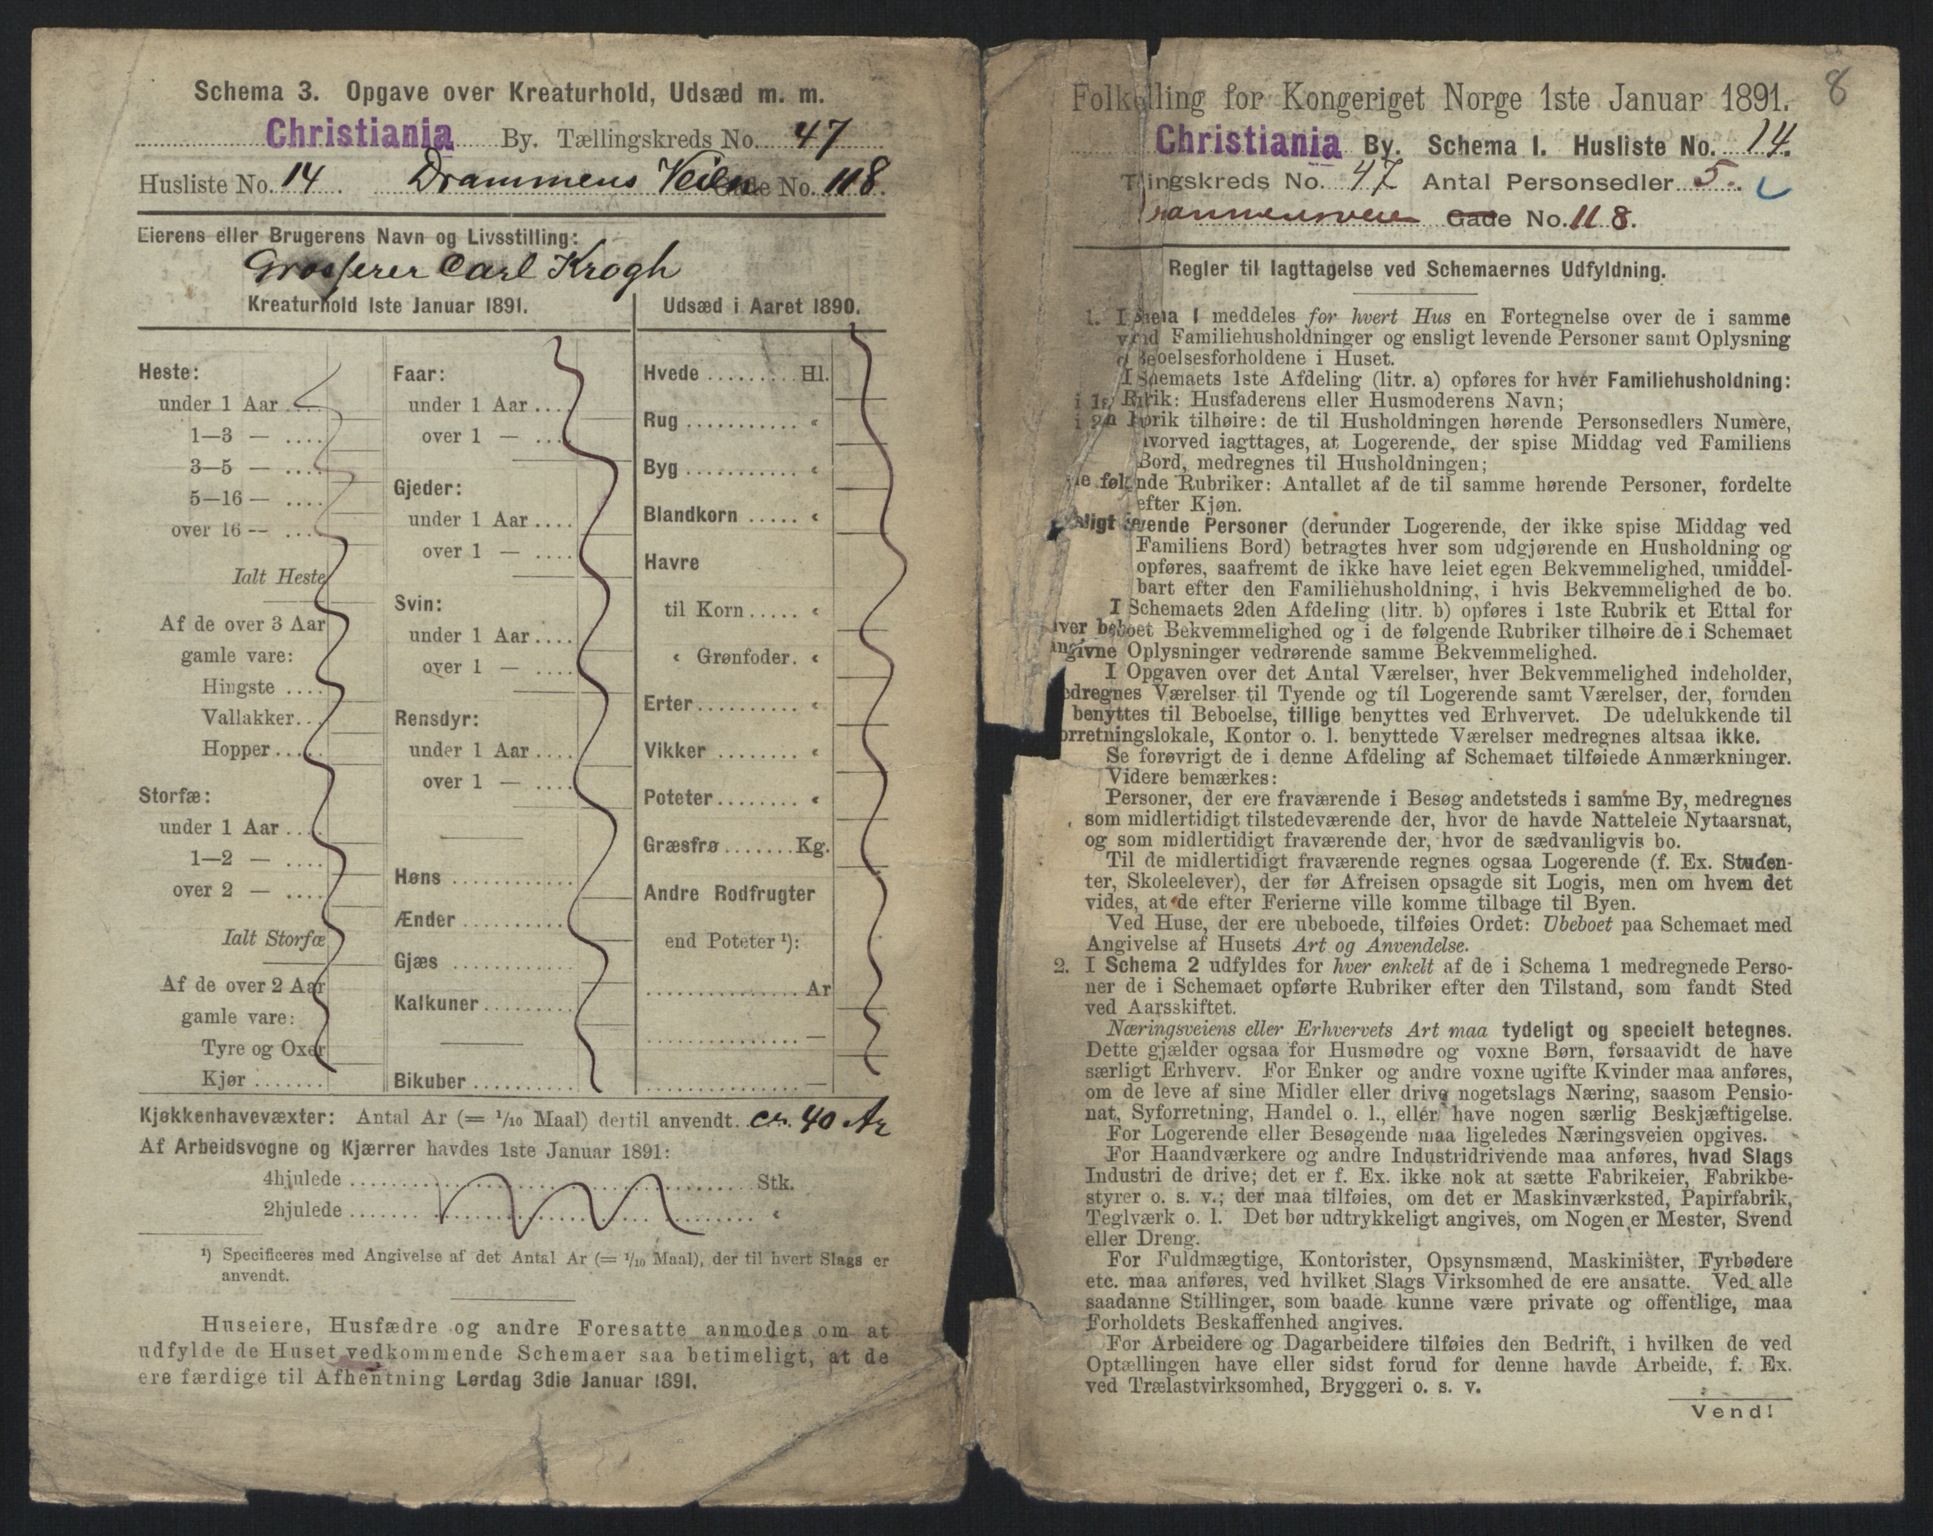 Schema 3. Opgave over Kreaturhold, Udsæd m. m.
Christiania By. Tællingskreds No. 47
Husliste No. 14 Drammens Veien Gade No. 118
Eierens eller Brugerens Navn og Livsstilling:
Grosserer Carl Krogh
Kreaturhold 1ste Januar 1891.
Heste:
under 1 Aar ....
1—3 — ....
3—5 — ....
5—16 — ....
over 16 — ....
Ialt Heste
Af de over 3 Aar
gamle vare:
Hingste ....
Vallakker...
Hopper ....
Storfæ:
under 1 Aar ....
1—2 — ....
over 2 — ....
Ialt Storfæ
Af de over 2 Aar
gamle vare:
Tyre og Oxer
Kjør ........
Faar:
under 1 Aar ....
over 1 — ....
Gjeder:
under 1 Aar ....
over 1 — ....
Svin:
under 1 Aar ....
over 1 — ....
Rensdyr:
under 1 Aar ....
over 1 — ....
Høns ...........
Ænder ..........
Gjæs ...........
Kalkuner ........
Bikuber ..........
Udsæd i Aaret 1890.
Hvede ......... Hl.
Rug ........... «
Byg ........... «
Blandkorn ..... «
Havre
til Korn ..... «
« Grønfoder. «
Erter ......... «
Vikker ........ «
Poteter ........ «
Græsfrø ....... Kg.
Andre Rodfrugter
end Poteter ¹):
.............. Ar
.............. —
.............. —
Kjøkkenhavevæxter: Antal Ar (= 1/10 Maal) dertil anvendt. ca. 40 Ar
Af Arbeidsvogne og Kjærrer havdes 1ste Januar 1891:
4hjulede ........................ Stk.
2hjulede ........................ «
¹) Specificeres med Angivelse af det Antal Ar (= 1/10 Maal), der til hvert Slags er
anvendt.
Huseiere, Husfædre og andre Foresatte anmodes om at
udfylde de Huset vedkommende Schemaer saa betimeligt, at de
ere færdige til Afhentning Lørdag 3die Januar 1891.
8
Folketælling for Kongeriget Norge 1ste Januar 1891.
Christiania By. Schema 1. Husliste No. 14.
Tællingskreds No. 47 Antal Personsedler 5.
Drammensveien Gade No. 118.
Regler til Iagttagelse ved Schemaernes Udfyldning.
1. I Schema 1 meddeles for hvert Hus en Fortegnelse over de i samme
værende Familiehusholdninger og ensligt levende Personer samt Oplysning
om Beboelsesforholdene i Huset.
I Schemaets 1ste Afdeling (litr. a) opføres for hver Familiehusholdning:
i 1ste Rubrik: Husfaderens eller Husmoderens Navn;
i 2den Rubrik tilhøire: de til Husholdningen hørende Personsedlers Numere,
hvorved iagttages, at Logerende, der spise Middag ved Familiens
Bord, medregnes til Husholdningen;
de følgende Rubriker: Antallet af de til samme hørende Personer, fordelte
efter Kjøn.
Ensligt levende Personer (derunder Logerende, der ikke spise Middag ved
Familiens Bord) betragtes hver som udgjørende en Husholdning og
opføres, saafremt de ikke have leiet egen Bekvemmelighed, umiddel-
bart efter den Familiehusholdning, i hvis Bekvemmelighed de bo.
I Schemaets 2den Afdeling (litr. b) opføres i 1ste Rubrik et Ettal for
hver beboet Bekvemmelighed og i de følgende Rubriker tilhøire de i Schemaet
angivne Oplysninger vedrørende samme Bekvemmelighed.
I Opgaven over det Antal Værelser, hver Bekvemmelighed indeholder,
medregnes Værelser til Tyende og til Logerende samt Værelser, der, foruden
benyttes til Beboelse, tillige benyttes ved Erhvervet. De udelukkende til
Forretningslokale, Kontor o. l. benyttede Værelser medregnes altsaa ikke.
Se forøvrigt de i denne Afdeling af Schemaet tilføiede Anmærkninger.
Videre bemærkes:
Personer, der ere fraværende i Besøg andetsteds i samme By, medregnes
som midlertidigt tilstedeværende der, hvor de havde Natteleie Nytaarsnat,
og som midlertidigt fraværende der, hvor de sædvanligvis bo.
Til de midlertidigt fraværende regnes ogsaa Logerende (f. Ex. Studen-
ter, Skoleelever), der før Afreisen opsagde sit Logis, men om hvem det
vides, at de efter Ferierne ville komme tilbage til Byen.
Ved Huse, der ere ubeboede, tilføies Ordet: Ubeboet paa Schemaet med
Angivelse af Husets Art og Anvendelse.
2. I Schema 2 udfyldes for hver enkelt af de i Schema 1 medregnede Perso-
ner de i Schemaet opførte Rubriker efter den Tilstand, som fandt Sted
ved Aarsskiftet.
Næringsveiens eller Erhvervets Art maa tydeligt og specielt betegnes.
Dette gjælder ogsaa for Husmødre og voxne Børn, forsaavidt de have
særligt Erhverv. For Enker og andre voxne ugifte Kvinder maa anføres,
om de leve af sine Midler eller drive nogetslags Næring, saasom Pensio-
nat, Syforretning, Handel o. l., eller have nogen særlig Beskjæftigelse.
For Logerende eller Besøgende maa ligeledes Næringsveien opgives.
For Haandværkere og andre Industridrivende maa anføres, hvad Slags
Industri de drive; det er f. Ex. ikke nok at sætte Fabrikeier, Fabrikbe-
styrer o. s. v.; der maa tilføies, om det er Maskinværksted, Papirfabrik,
Teglværk o. l. Det bør udtrykkeligt angives, om Nogen er Mester, Svend
eller Dreng.
For Fuldmægtige, Kontorister, Opsynsmænd, Maskinister, Fyrbødere
etc. maa anføres, ved hvilket Slags Virksomhed de ere ansatte. Ved alle
saadanne Stillinger, som baade kunne være private og offentlige, maa
Forholdets Beskaffenhed angives.
For Arbeidere og Dagarbeidere tilføies den Bedrift, i hvilken de ved
Optællingen have eller sidst forud for denne havde Arbeide, f. Ex.
ved Trælastvirksomhed, Bryggeri o. s. v.
Vend!